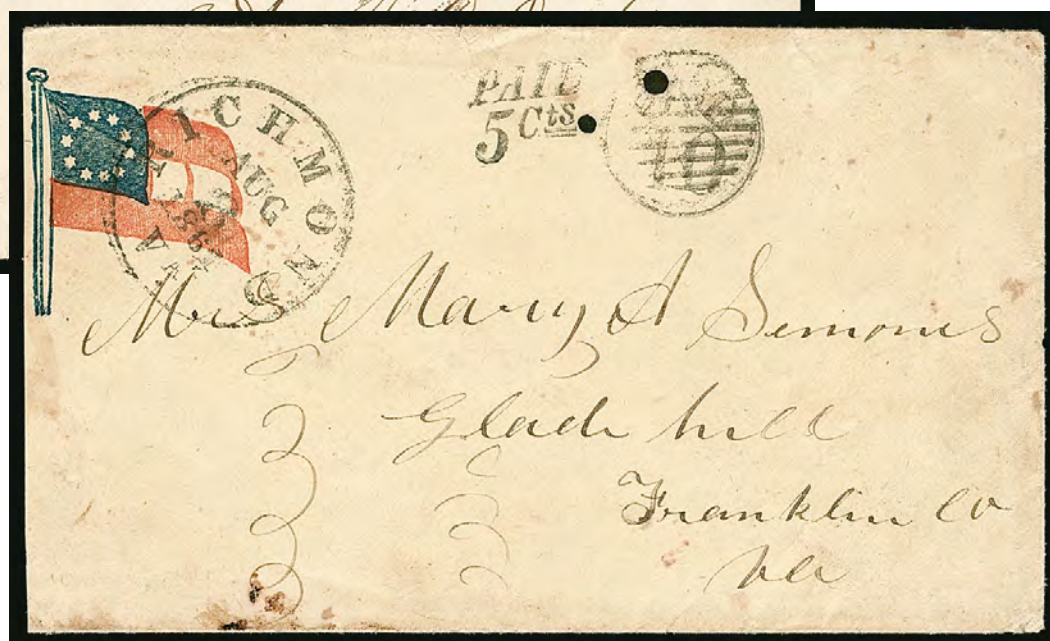 RICHMOND
AUG
1861
VA
PAID
5 Cts
PAID
10
Mrs Mary A Semones
Glade hill
Franklin Co
Va